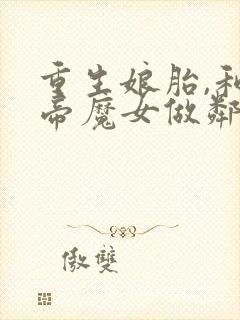 重生娘胎,和
帝魔女做鄰
傲雙